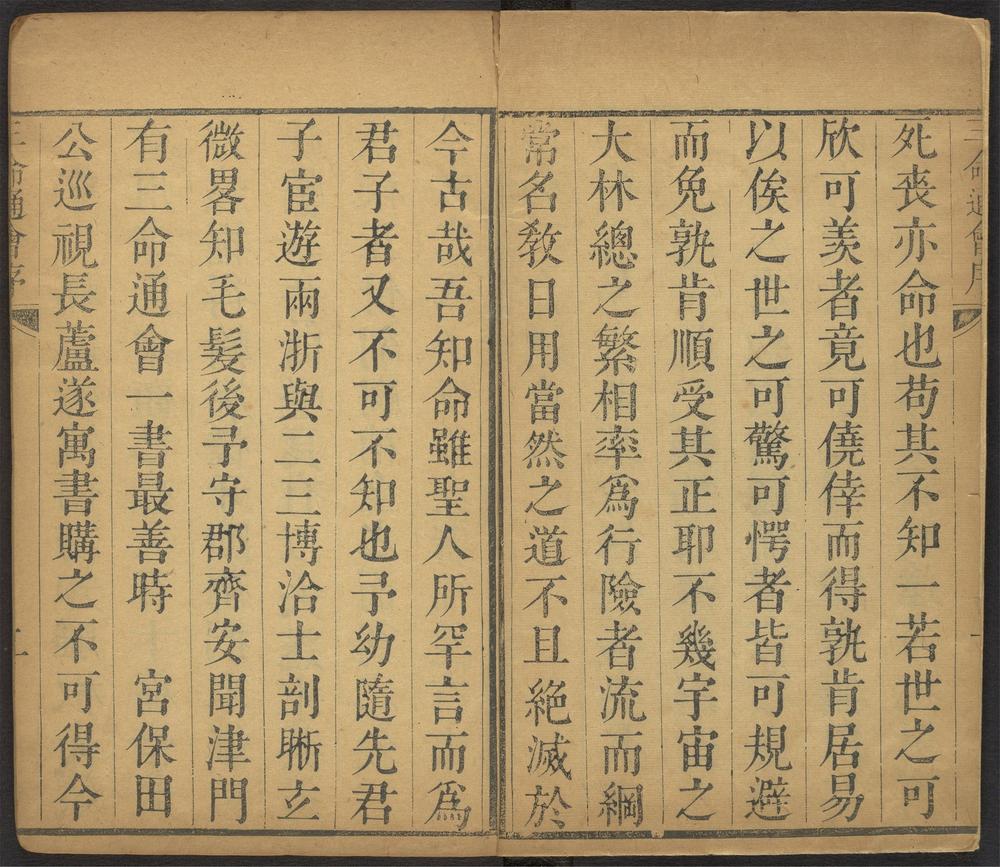 三命通會序
死喪亦命也苟其不知一若世之可
欣可羡者竟可僥倖而得孰肯居易
以俟之世之可驚可愕者皆可規避
而免孰肯順受其正耶不幾宇宙之
大林總之繁相率爲行險者流而綱
常名敎日用當然之道不且絕滅於
今古哉吾知命雖聖人所罕言而爲
君子者又不可不知也予幼隨先君
子宦遊兩浙與二三博洽士剖晰玄
微畧知毛髮後予守郡齊安聞津門
有三命通會一書最善時　宮保田
公巡視長蘆遂寓書購之不可得今
三命通會序